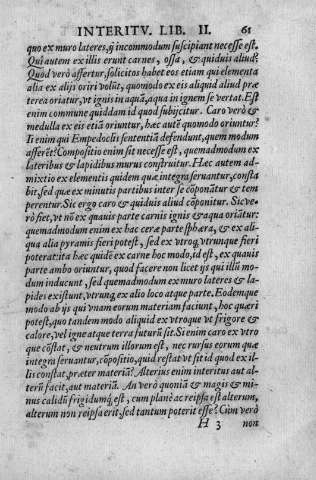 INTERITV. LIB. II. 61
quo ex muro lateres, q̃ incommodum suscipiant necesse est.
Qui autem ex illis erunt carnes, ossa, & quiduis aliud?
Quod verò affertur, solicitos habet eos etiam qui elementa
alia ex alijs oriri volũt, quomodo ex eis aliquid aliud præ
terea oriatur, vt ignis in aquã, aqua in ignem se vertat. Est
enim commune quiddam id quod subijcitur. Caro verò &
medulla ex eis etiã oriuntur, hæc autẽ quomodo oriuntur?
Ii enim qui Empedoclis sententiã defendunt, quem modum
afferẽt? Compositio enim sit necesse est, quemadmodum ex
lateribus & lapidibus murus construitur. Hæc autem ad-
mixtio ex elementis quidem quæ integra seruantur, consta
bit, sed quæ ex minutis partibus inter se cõponãtur & tem
perentur. Sic ergo caro & quiduis aliud cõponitur. Sic ve-
rò fiet, vt nõ ex quauis parte carnis ignis & aqua oriãtur:
quemadmodum enim ex hac ceræ parte sphæra, & ex ali-
qua alia pyramis fieri potest, sed ex vtroq; vtrunque fieri
poterat: ita hæc quidẽ ex carne hoc modo, id est, ex quauis
parte ambo oriuntur, quod facere non licet ijs qui illũ mo-
dum inducunt, sed quemadmodum ex muro lateres & la-
pides existunt, vtrunq; ex alio loco atque parte. Eodemque
modo ab ijs qui vnam eorum materiam faciunt, hoc quæri
potest, quo tandem modo aliquid ex vtroque vt frigore &
calore, vel igne atque terra futurũ sit. Si enim caro ex vtro
que cõstat, & neutrum illorum est, nec rursus eorum quæ
integra seruantur, cõpositio, quid restat vt sit id quod ex il-
lis constat, præter materiã? Alterius enim interitus aut al-
terũ facit, aut materiã. An verò quoniã & magis & mi-
nus calidũ frigidumq́; est, cum planè ac reipsa est alterum,
alterum non reipsa erit, sed tantum poterit esse? Cùm verò
H 3 non